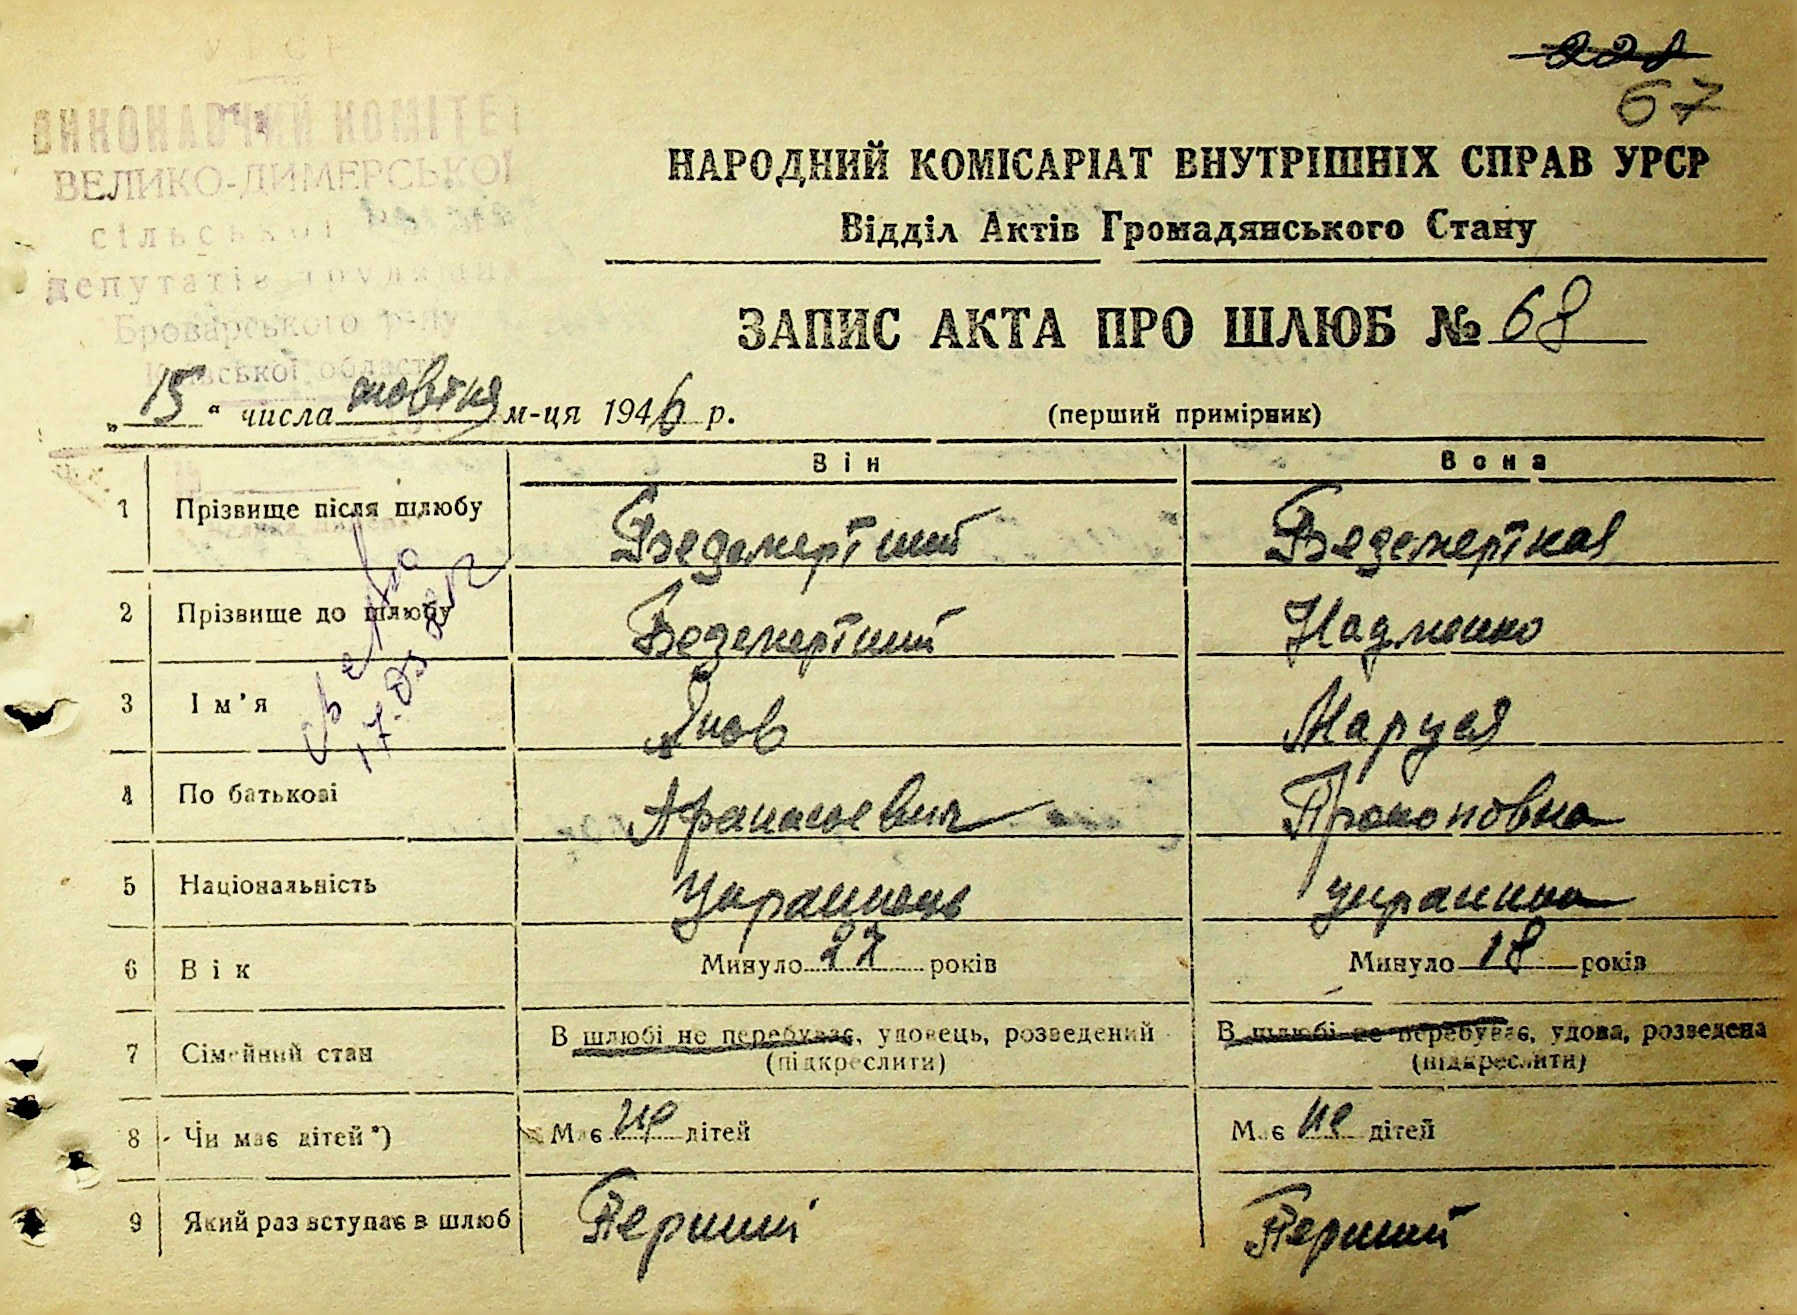 УРСР
ВИКОНАВЧИЙ КОМІТЕТ
ВЕЛИКО-ДИМЕРСЬКОЇ
сільської
депутатів трудящих
Броварського р-ну
Київської області
228
67
НАРОДНИЙ КОМІСАРІАТ ВНУТРІШНІХ СПРАВ УРСР
Відділ Актів Громадянського Стану
ЗАПИС АКТА ПРО ШЛЮБ № 68
„15“ числа жовтня м-ця 1946 р.
(перший примірник)
Він Вона
1 Прізвище після шлюбу Безсмертний Безсмертная
2 Прізвище до шлюбу Безсмертний Надменко
3 Ім'я Яков Маруся
4 По батькові Афанасьевич Прокоповна
5 Національність Украинець украинка
6 Вік Минуло 27 років Минуло 18 років
7 Сімейний стан В шлюбі не перебуває, удовець, розведений В шлюбі не перебуває, удова, розведена
(підкреслити) (підкреслити)
8 Чи має дітей*) Має не дітей Має не дітей
9 Який раз вступає в шлюб Перший Перший